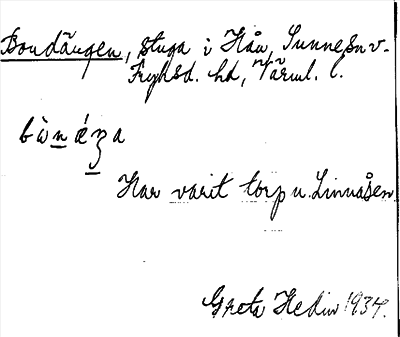 Bondängen, stuga i Hån, Sunne sn v.
Fryksd. hd, Värml. l.
bònǽŋa
Har varit torp u. Linnåsen.
Greta Hedin 1934.